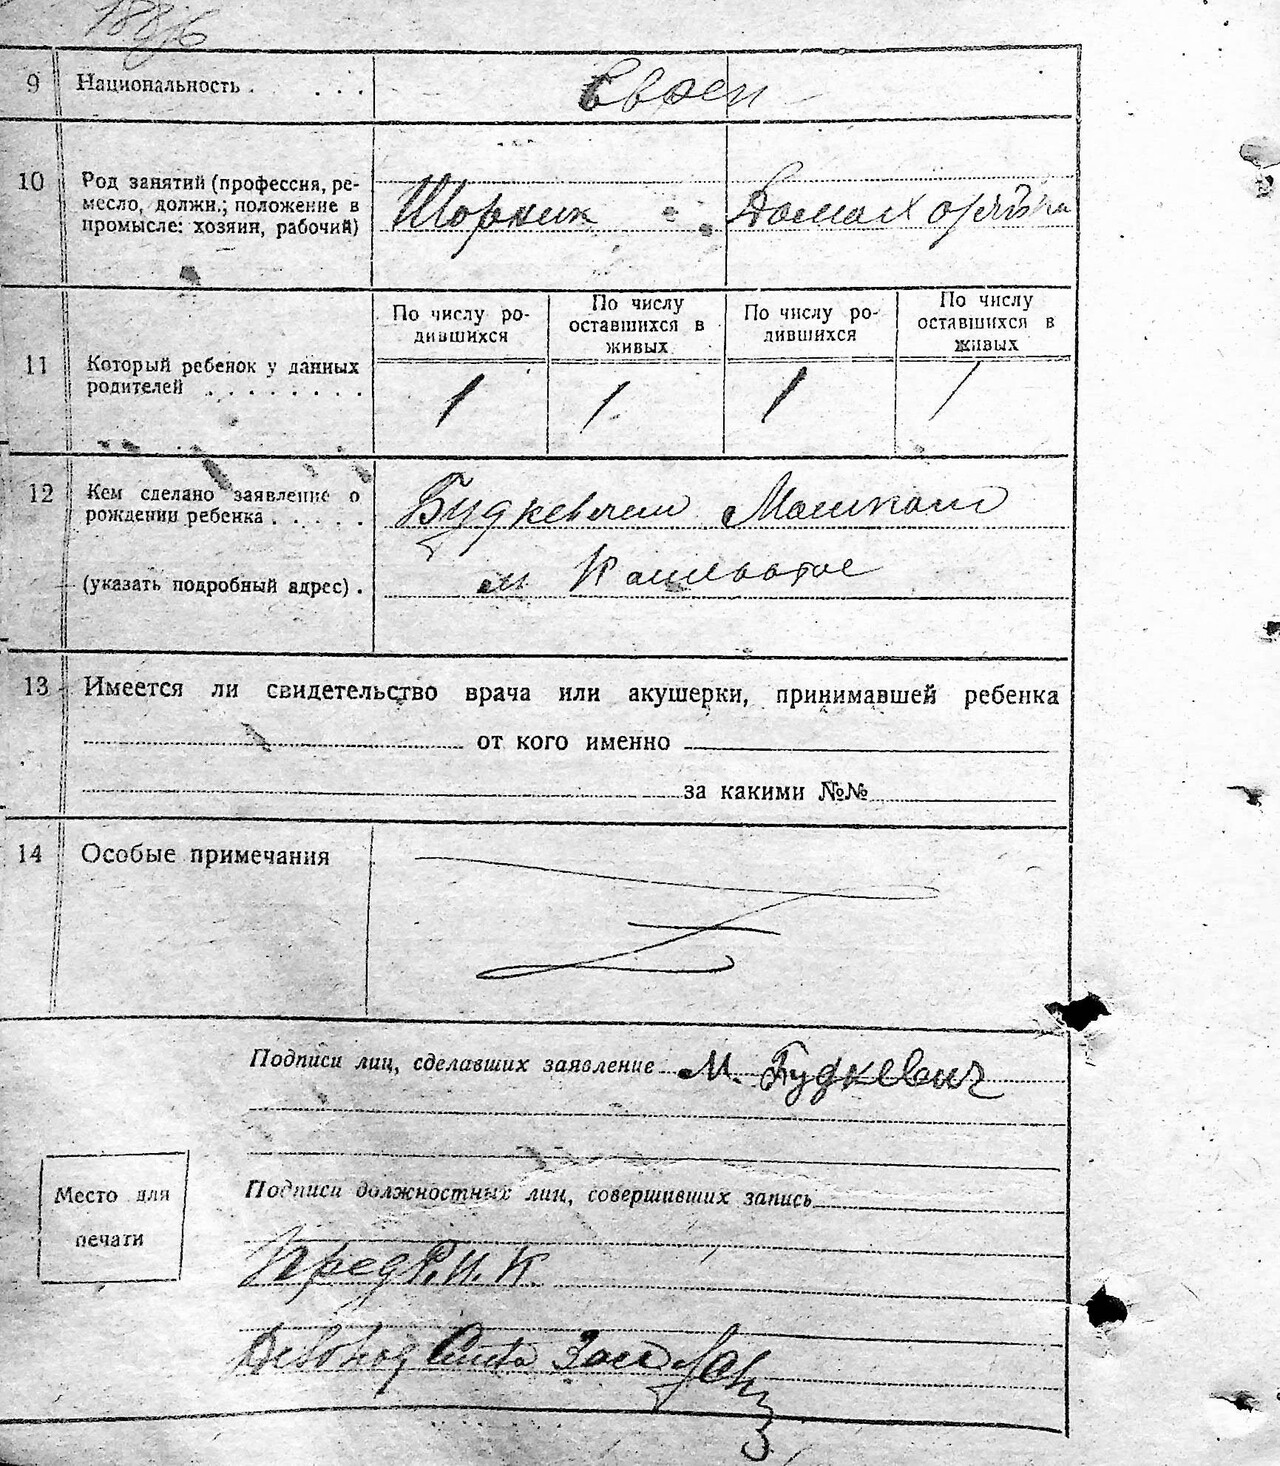 9 Национальность . . . . Евреи
10 Род занятий (профессия, ре-
месло, должн.; положение в
промысле: хозяин, рабочий) Шорник Домахозяйка
11 Который ребенок у данных
родителей . . . . . . . .
По числу ро-
дившихся
По числу
оставшихся в
живых
По числу ро-
дившихся
По числу
оставшихся в
живых
1 1 1 1
12 Кем сделано заявление о
рождении ребенка . . . . . Будкевичем
(указать подробный адрес) . м
13 Имеется ли свидетельство врача или акушерки, принимавшей ребенка
от кого именно
за какими №№
14 Особые примечания
Подписи лиц, сделавших заявление М. Будкевич
Место для
печати
Подписи должностных лиц, совершивших запись
Пред Р.И.К.
Делопод